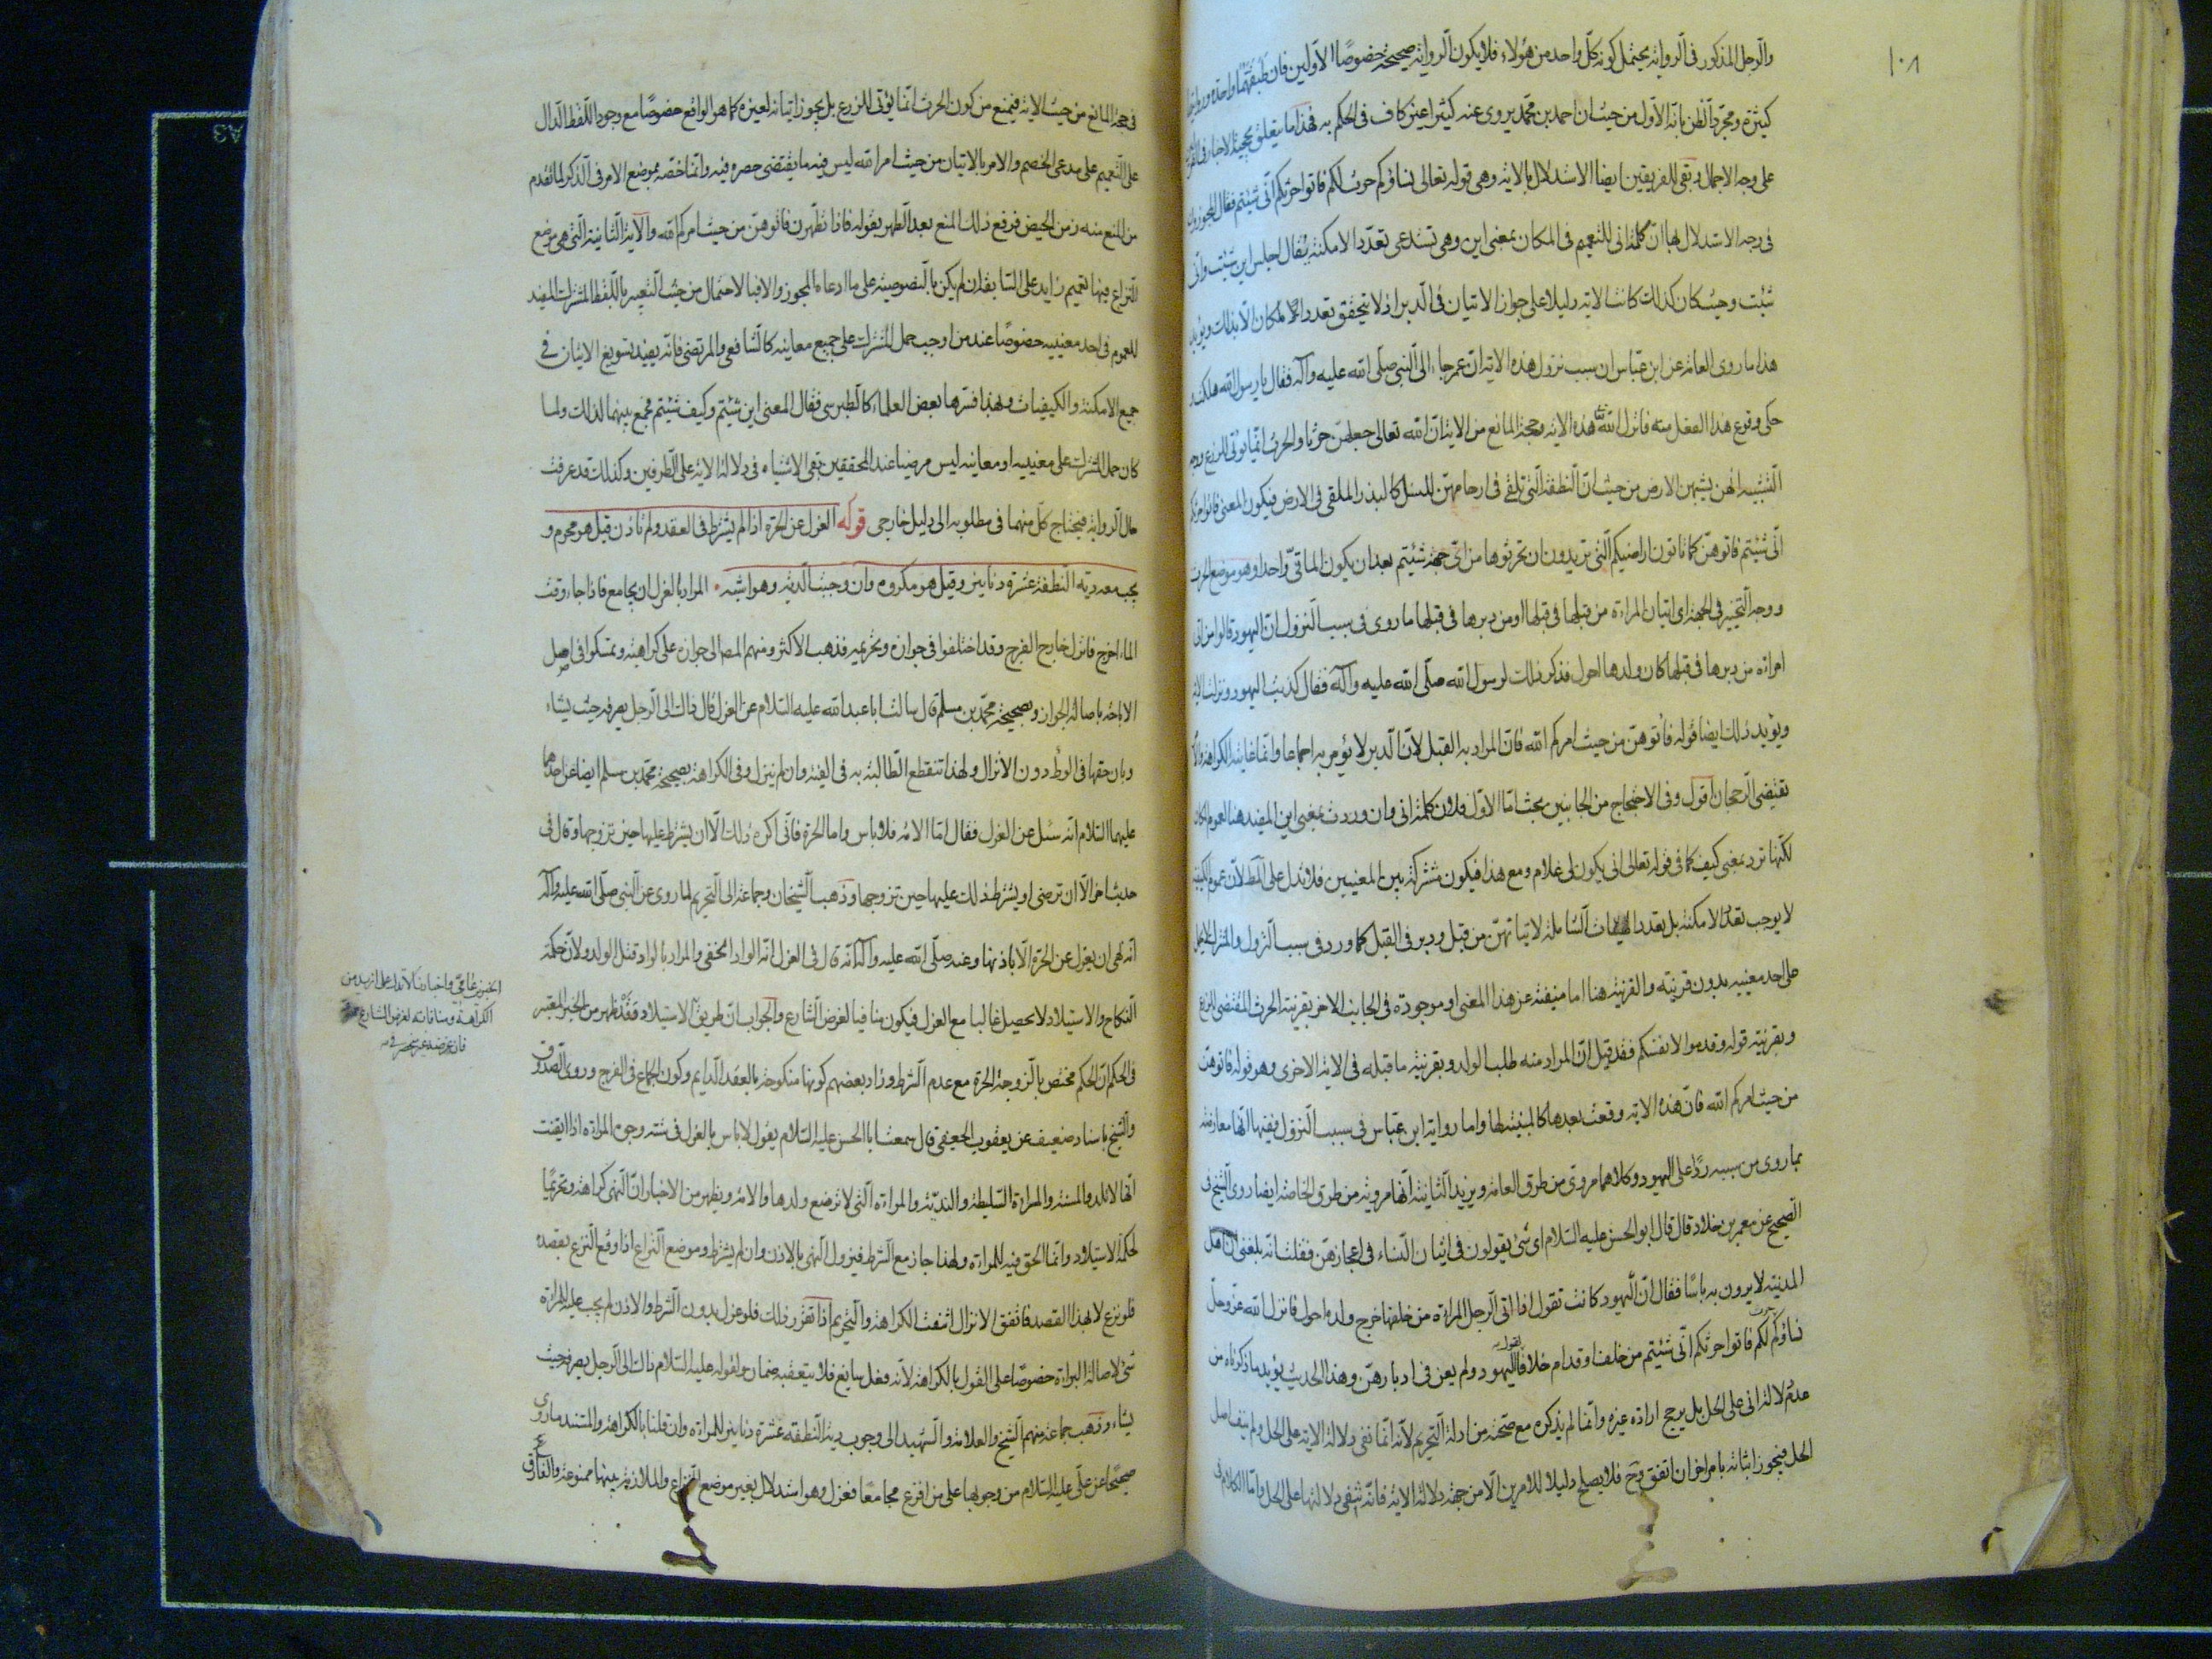 ١٠٨
والرجل المذكور فى الرواية يحتمل كونه كل واحد من هؤلاء فلا يكون الرواية صحيحة خصوصًا الاولين فان طبقتهما واحدة
كثيرة ومجرد الظن بانه الاول من حيث ان احمد بن محمد يروى عنه كثيرا غير كاف فى الحكم به فهذا ما يتعلق بحجية الاخبار
على وجه الاجمال وبقى للفريقين ايضا الاستدلال بالاية وهى قوله تعالى نساؤكم حرث لكم فاتوا حرثكم انى شئتم فقال المجوزون
فى وجه الاستدلال بها ان كلمة انى للتعميم فى المكان بمعنى اين وهى تستدعى تعدد الامكنة يقال اجلس اين شئت وانى
شئت وحيث كان كذلك كانت الاية دليلا على جواز الاتيان فى الدبر اذ لا يتحقق تعدد المكان الا بذلك ويؤيد
هذا ما روى العامة عن ابن عباس ان سبب نزول هذه الاية ان عمر جاء الى النبى صلى الله عليه وآله فقال يا رسول الله هلكت
حكى وقوع هذا الفعل منه فانزل الله هذه الاية وحجة المانع من الاية ان الله تعالى جعلهن حرثا والحرث انما يؤتى للزرع
التشبيه انهن يشبهن الارض من حيث ان النطفة التى تلقى فى ارحامهن للنسل كالبذر الملقى فى الارض فيكون المعنى فاتوا حرثكم
انى شئتم فاتوهن كما تاتون اراضيكم التى تريدون ان تحرثوها من اى جهة شئتم بعد ان يكون الماتى واحدا وهو موضع الحرث
ووجه التخيير فى الجهة اى اتيان المراة من قبلها فى قبلها او من دبرها فى قبلها ما روى فى سبب النزول ان اليهود قالوا من اتى
امراة من دبرها فى قبلها كان ولدها احول فذكر ذلك لرسول الله صلى الله عليه وآله فقال كذبت اليهود ونزلت الاية
ويؤيد ذلك ايضا قوله فاتوهن من حيث امركم الله فان المراد به القبل لان الدبر لا يؤمر به اجماعا وانما غايته الكراهة
تقتضى الرجحان اقول وفى الاحتجاج من الجانبين بحث اما الاول فلان كلمة انى وان وردت بمعنى اين المفيد هنا لعموم المكان
لكنها ترد بمعنى كيف كما فى قوله تعالى انى يكون لى غلام ومع هذا فيكون مشتركة بين المعنيين فلا تدل على المط لان عموم الكيفية
لا يوجب تعدد الامكنة بل تعدد الهيات الشاملة لاتياتهن من قبل ودبر فى القبل كما ورد فى سبب النزول والمشترك لا يحمل
على احد معنييه بدون قرينة والقرينة هنا اما منفية عن هذا المعنى او موجودة فى الجانب الاخر بقرينة الحرث المقتضى للزرع
وبقرينة قوله وقدموا لانفسكم فقد قيل ان المراد منه طلب الولد وبقرينة ما قبله فى الاية الاخرى وهو قوله فاتوهن
من حيث امركم الله فان هذه الاية وقعت بعدها كالمبينة لها واما رواية ابن عباس فى سبب النزول ففيها انها معارضة
بما روى من سببه ردا على اليهود وكلاهما مروى من طرق العامة ويزيد الثانية انها مروية من طرق الخاصة ايضا روى الشيخ فى
الصحيح عن معمر بن خلاد قال قال ابو الحسن عليه السلام اى شئ يقولون فى اتيان النساء فى اعجازهن فقلت انه بلغنى ان اهل
المدينة لا يرون به باسًا فقال ان اليهود كانت تقول اذا اتى الرجل المراة من خلفها خرج ولده احول فانزل الله عز وجل
نساؤكم حرث لكم فاتوا حرثكم انى شئتم من خلف او قدام خلافا لقول اليهود ولم يعن فى ادبارهن وهذا الحديث يؤيد ما ذكرناه من
عدم دلالة انى على الحل بل يرجح ارادة غيره وانما لم يذكره مع صحته من ادلة التحريم لانه انما نفى دلالة الاية على الحل ولم ينف اصل
الحل فيجوز اثباته بامر اخر ان اتفق وح فلا يصلح دليلا للامرين الا من جهة دلالة الاية فانه تنتفى دلالتها على الحل واما الكلام فى
فى حجة المانع من حيث الاية فيمنع من كون الحرث انما يؤتى للزرع بل يجوز اتيانه لغيره كما هو الواقع خصوصًا مع وجود اللفظ الدال
على التعميم على مدعى الخصم والامر بالاتيان من حيث امر الله ليس فيه ما يقتضى حصره فيه وانما خصه بموضع الامر فى الذكر لما تقدم
من المنع منه زمن الحيض فرفع ذلك المنع بعد الطهر بقوله فاذا تطهرن فاتوهن من حيث امركم الله والاية الثانية التى هى موضع
النزاع فيها تعميم زايد على السابقة ان لم يكن بالنصوصية على ما ادعاه المجوز والا فبالاحتمال من حيث التعبير باللفظ المشترك المفيد
للعموم فى احد معنييه خصوصًا عند من اوجب حمل المشترك على جميع معانيه كالشافعى والمرتضى فانه يفيد تسويغ الاتيان فى
جميع الامكنة والكيفيات ولهذا فسرها بعض العلماء كالطبرسى فقال المعنى اين شئتم وكيف شئتم فجمع بينهما لذلك ولما
كان حمل المشترك على معنييه او معانيه ليس مرضيا عند المحققين بقى الاشتباه فى دلالة الاية على الطرفين وكذلك قد عرفت
حال الرواية فيحتاج كل منهما فى مطلوبه الى دليل خارجى قوله العزل عن الحرة اذا لم يشترط فى العقد ولم تاذن قيل هو محرم و
يجب معه دية النطفة عشرة دنانير وقيل هو مكروه وان وجبت الدية وهو اشبه المراد بالعزل ان يجامع فاذا جاء وقت
الماء اخرج فانزل خارج الفرج وقد اختلفوا فى جوازه وتحريمه فذهب الاكثر ومنهم المصـ الى جوازه على كراهية وتمسكوا فى اصل
الاباحة باصالة الجواز وبصحيحة محمد بن مسلم قال سالت ابا عبد الله عليه السلام عن العزل قال ذاك الى الرجل يصرفه حيث يشاء
وبان حقها فى الوطء دون الانزال ولهذا تنقطع المطالبة به فى الفئة وان لم ينزل وفى الكراهة بصحيحة محمد بن مسلم ايضا عن احدهما
عليهما السلام انه سئل عن العزل فقال اما الامة فلا باس واما الحرة فانى اكره ذلك الا ان يشترط عليها حين تزوجها وقال فى
حديث اخر الا ان ترضى او يشترط ذلك عليها حين تزوجها وذهب الشيخان وجماعة الى التحريم لما روى عن النبى صلى الله عليه وآله
انه نهى ان يعزل عن الحرة الا باذنها وعنه صلى الله عليه وآله انه قال فى العزل انه الواد الخفى والمراد بالواد قتل الولد ولان حكمة
النكاح والاستيلاد لا يحصل غالبا مع العزل فيكون منافيا لغرض الشارع والجواب ان طريق الاستيلاد فقد ظهر من الخبر المعتبر
فى الحكم ان الحكم مختص بالزوجة الحرة مع عدم الشرط وزاد بعضهم كونها منكوحة بالعقد الدايم وكون الجماع فى الفرج وروى الصدوق
والشيخ باسناد ضعيف عن يعقوب الجعفى قال سمعت ابا الحسن عليه السلام يقول لا باس بالعزل فى ستة وجوه المراة اذا ايقنت
انها لا تلد والمسنة والمراة السليطة والبذية والمراة التى لا ترضع ولدها والامة ويظهر من الاخبار ان النهى كراهة وتحريمًا
لحكمة الاستيلاد وانما الحق فيه للمراة ولهذا جاز مع الشرط فيزول النهى بالاذن وان لم يشترط وموضع النزاع اذا وقع النزع بقصده
فلو نزع لا لهذا القصد فاتفق الانزال انتفت الكراهة والتحريم اذا تقرر ذلك فلو عزل بدون الشرط والاذن لم يجب عليه للمراة
شئ لاصالة البراءة خصوصًا على القول بالكراهة لانه فعل سايغ فلا يتعقبه ضمان ولقوله عليه السلام ذاك الى الرجل يصرفه حيث
يشاء وذهب جماعة منهم الشيخ والعلامة والشهيد الى وجوب دية النطفة عشرة دنانير للمراة وان قلنا بالكراهة والمستند ما روى
صحيحًا عن على عليه السلام من وجوبها على من افزع مجامعًا فعزل وهو استدلال بغير موضع النزاع والملازمة بينهما ممنوعة والفارق
الخبرين عامى واخبارنا لا تدل على ازيد من
الكراهة ومنافاته لغرض الشارع